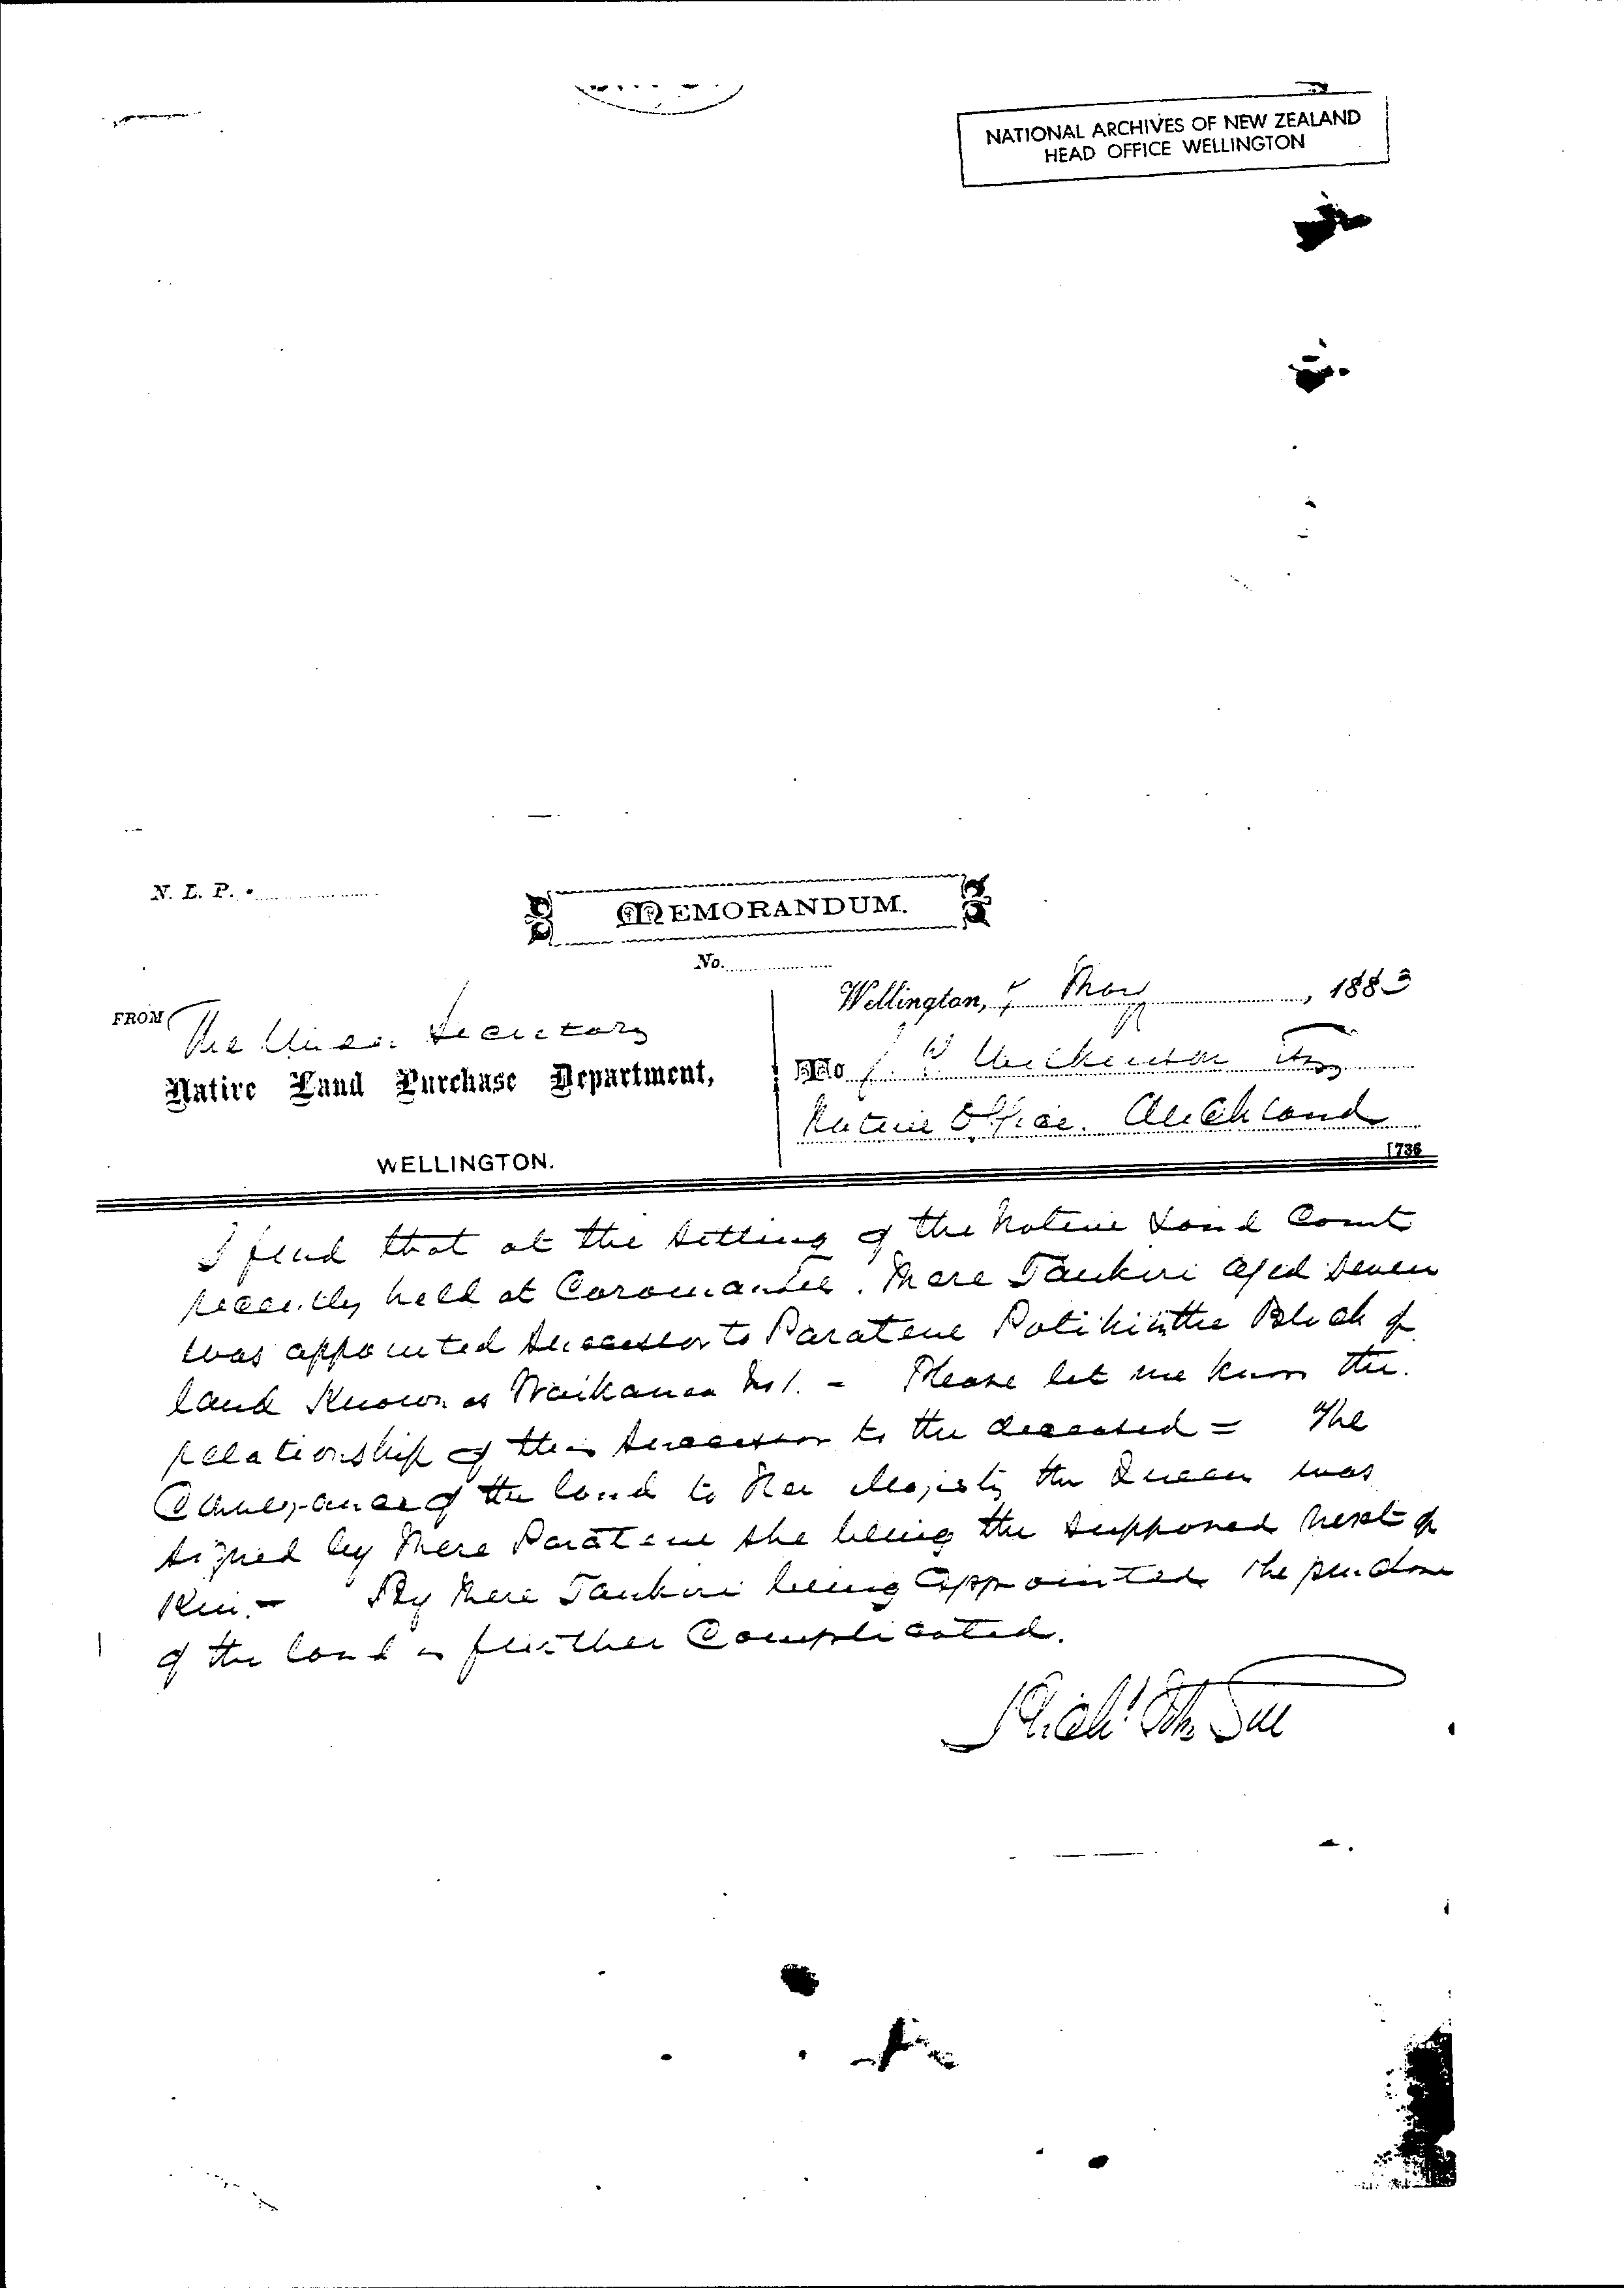 NATIONAL ARCHIVES OF NEW ZEALAND
HEAD OFFICE WELLINGTON
N. L. P.
MEMORANDUM.
No.
Wellington, May, 1883
FROM
The Under Secretary
Native Land Purchase Department,
WELLINGTON.
To W Wilkinson Esq
Native Office. Auckland
[736
I find that at the sitting of the Native Land Court
recently held at Coromandel. Mere Taukiri aged seven
was appointed successor to Paratene Potiki in the Block of
land known as Waikanae No 1. - Please let me know the
relationship of this successor to the deceased = The
Conveyance of the land to Her Majesty the Queen was
signed by Mere Paratene she being the supposed next of
Kin. - By Mere Taukiri being appointed the purchase
of the land is further Complicated.
Rich Gill